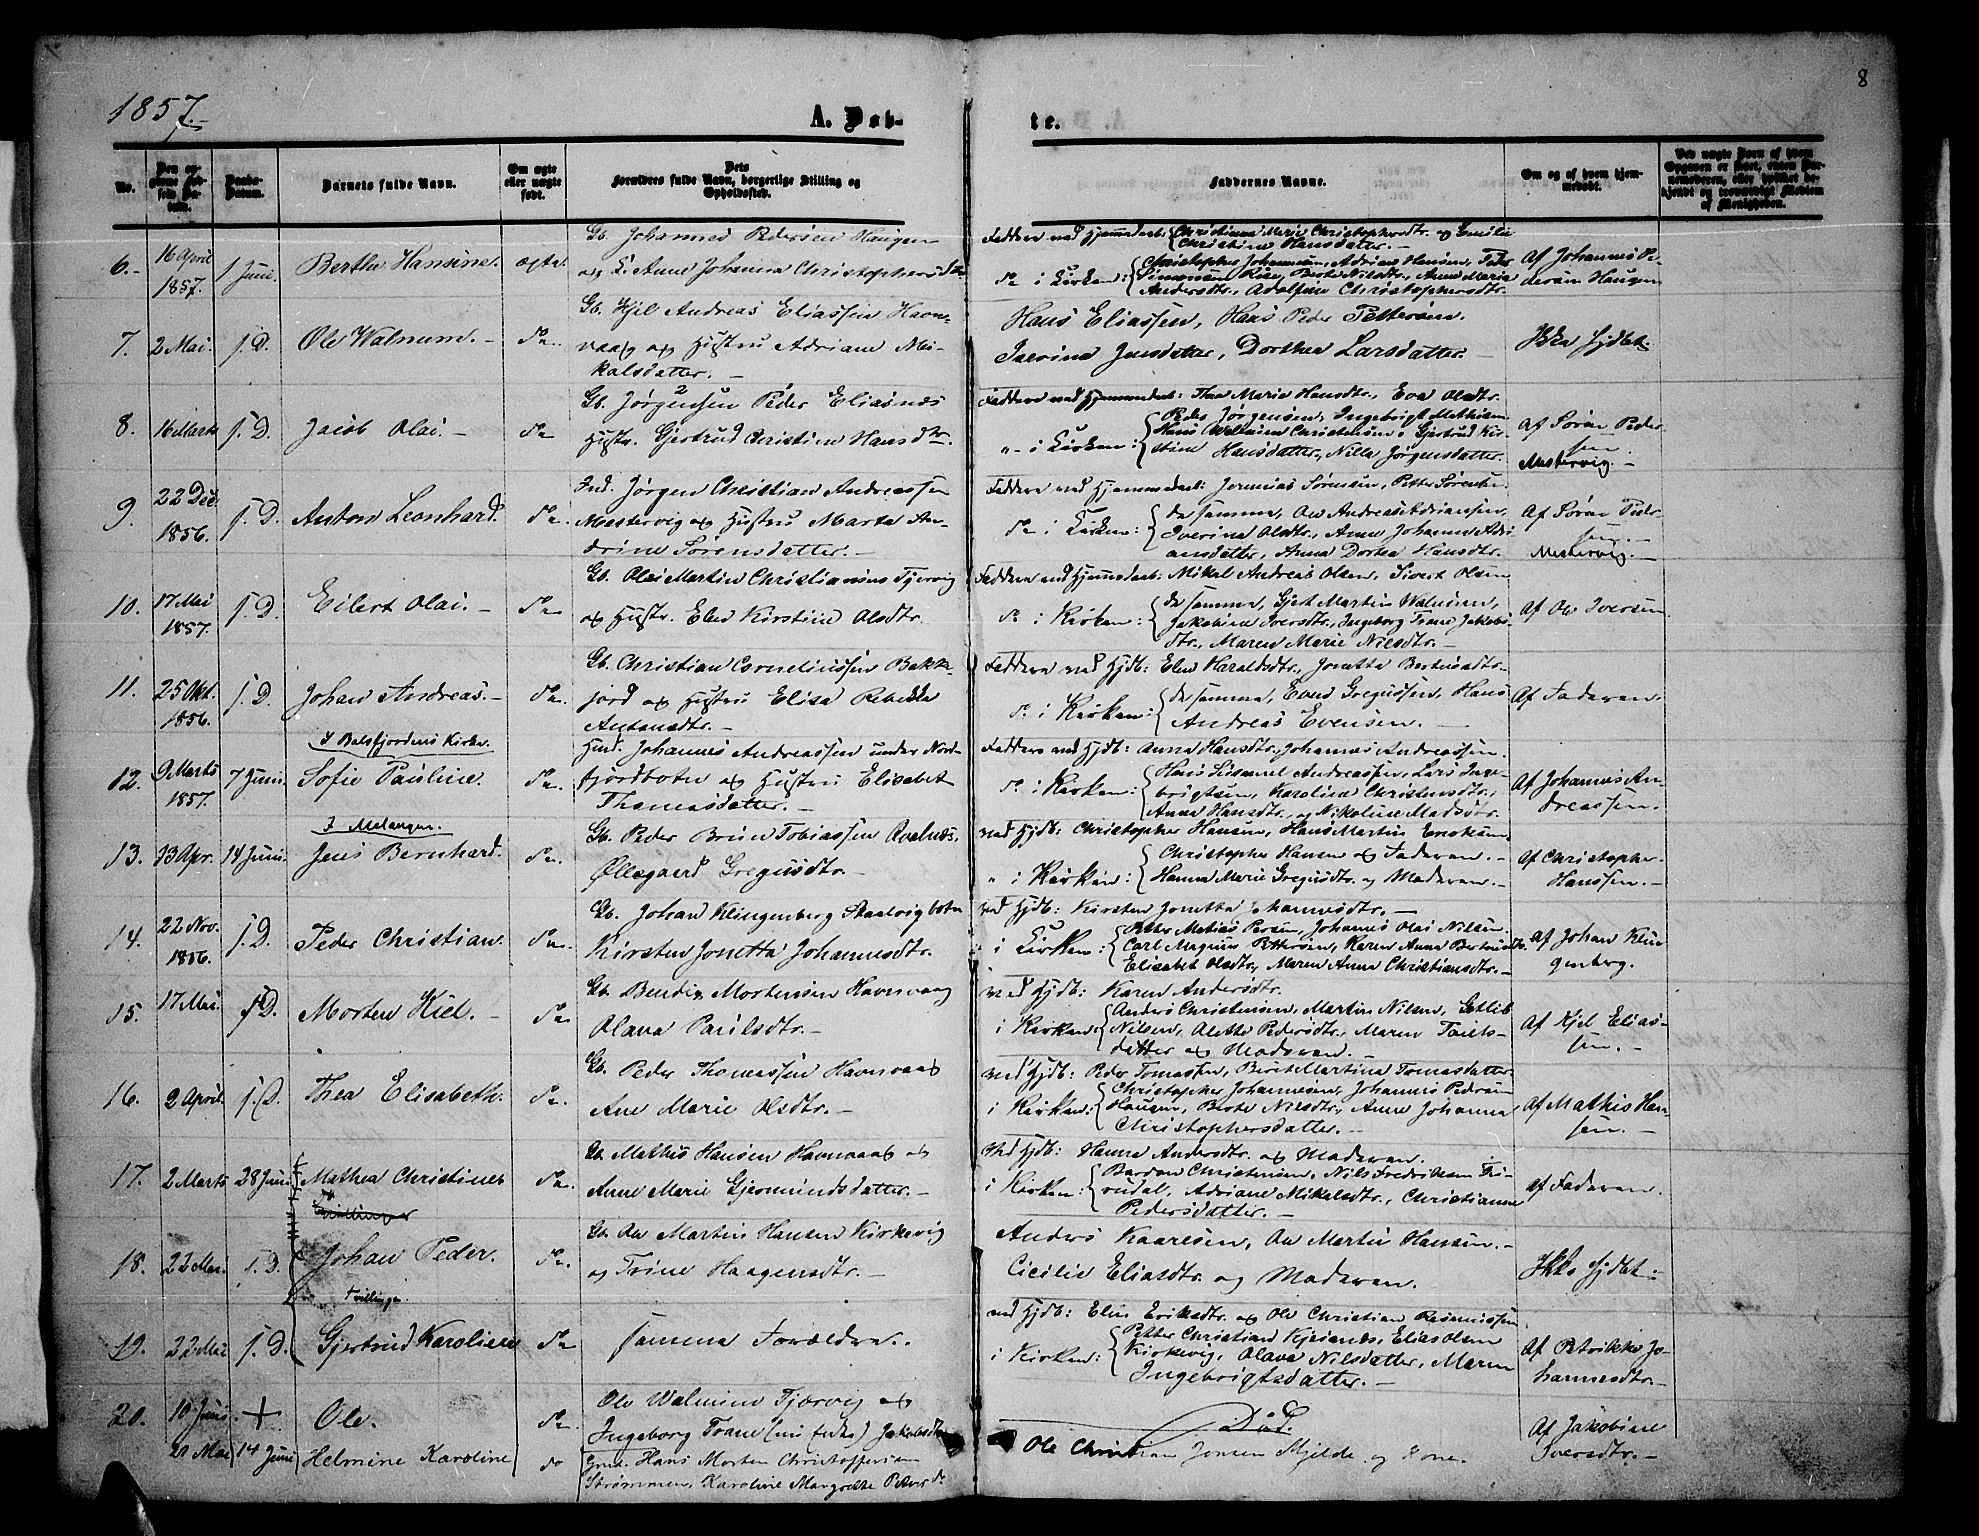 8
1857.
A. Døb-
te.
No.
Barnets fulde Navn.
Om ægte eller uægte født.
Forældres fulde Navn, borgerlige Stilling og Opholdssted.
Faddernes Navne.
Om og af hvem hjemmedøbt.
6. 16 April 1857. 1 Juni. Berthe Hansine. ægte.
Gb. Johannes Pedersen Haugen
og K. Anne Johanna Christophersdtr.
Faddere ved Hjemmedaab: Christianna Marie Christophersdtr. og Emilie
Christine Hansdatter.
do i Kirken: Christopher Johannesen, Adrian Hansen, Peder
Simonsen, Berte Nilsdtr., Anne Marie
Andersdtr., Adolfine Christophersdtr.
Af Johannes Pedersen Haugen
7. 2 Mai. s. D. Ole Walnum. do
Gb. Kjil Andreas Eliassen Havn-
vaag og Hustru Adriane Mi-
kalsdatter.
Hans Eliassen, Hans Peder Pettersen.
Iverine Jensdatter, Dorthea Larsdatter.
Ikke Hjdbt.
8. 16 Marts s. D. Jacob Olai. do
Gb. Jørgensen Peder Eliasnes
Hustr. Gjertrud Christine Hansdtr.
Faddere ved Hjemmedaab: Thea Marie Hansdtr., Eva Olsdtr.
i Kirken: Peder Jørgensen, Ingebrigt Mathisen
Hans Walnum Christensen, Gjertrud Kir-
stine Hansdatter, Nille Jørgensdatter.
Af Søren Peder-
sen
Mestervig.
9. 22 Dec. 1856. s. D. Anton Leonhard. do
Ind. Jørgen Christian Andreassen
Mestervig og Hustru Marta An-
drine Sørensdatter.
Faddere ved Hjemmedaab: Jeremias Sørensen, Petter Sørensen.
do i Kirken: de samme, Ole Andreas Adriansen,
Iverine Olsdtr., Anne Johanne Adri-
ansdatter, Anna Dortea Hansdtr.
Af Søren Peder-
sen.
Mestervig.
10. 17 Mai 1857. s. D. Eilert Olai. do
Gb. Olai Martin Christiansen Tjærvig
og Hustr. Elen Kirstine Olsdtr.
Faddere ved Hjemmedaab: Mikal Andreas Olsen, Sivert Olsen
do i Kirken: de samme, Gjert Martin Walnum,
Jakobine Iversdtr., Ingeborg Trane Jakobs-
dtr., Maren Marie Nilsdtr.
Af Ole Iversen
11. 25 Okt. 1856. s. D. Johan Andreas. do
Gb. Christian Corneliussen Bakke-
jord og Hustru Elisa Rebekka
Antonsdtr.
Faddere ved Hjdb: Elen Haraldsdtr., Jonetta Berteusdtr.
do i Kirken: de samme, Even Gregussen, Hans
Andreas Evensen.
Af Faderen.
I Balsfjordens Kirke.
12. 9 Marts 1857. 7 Juni. Sofie Pauline. do
Husd. Johannes Andreassen under Nord-
fjordboten og Hustru Elisabet
Thomasdatter.
Faddere ved Hjdb: Anna Hansdtr., Johannes Andreassen.
do i Kirken: Hans Andreassen, Lars Inge-
brigtsen, Karoline Christensdtr.,
Anna Hansdtr., og Nikoline Madsdtr.
Af Johannes An-
dreassen.
I Malangen.
13. 13 Apr. 14 Juni. Jens Bernhard. do
Gb. Peder Brun Tobiassen Qvalnæs.
Ollegaard Gregusdtr.
ved Hjdb: Christopher Hansen, Hans Martin Enoksen
i Kirken: Christopher Hansen og Faderen.
Hanna Marie Gregusdtr. og Moderen.
Af Christopher
Hanssen.
14. 22 Nov. 1856. s. D. Peder Christian. do
Gb. Johan Klingenberg Staalvigboten
Kirsten Jonetta Johannesdtr.
ved Hjdb: Kirsten Jonetta Johannesdtr.
i Kirken: Petter Matias Persen, Johannes Olai Nilsen
Carl Magnus Pettersen, Karen Anna Berteusdtr.
Elisabet Olsdtr., Maren Anne Christiansdtr.
Af Johan Klin-
genberg.
15. 17 Mai. s. D. Morten Kiel. do
Gb. Bendix Mortensen Havnvaag
Olava Paulsdtr.
ved Hjdb: Karen Andersdtr.
i Kirken: Anders Christensen, Martin Nilsen, Gotlib
Nilsen, Alette Pedersdtr., Maren Pauls-
datter og Moderen.
Af Kjel Elias-
sen.
16. 2 April. s. D. Thea Elisabeth. do
Gb. Peder Thomassen Havnvaag
Ane Marie Olsdtr.
ved Hjdb: Peder Tomassen, Birit Martina Tomasdatter.
i Kirken: Christopher Johannesen, Johannes Pedersen
Haugen, Berte Nilsdtr., Anne Johanna
Christophersdatter.
Af Mathis Han-
sen.
17. 2 Marts 28 Juni Mathea Christine do
Gb. Mathis Hansen Havnvaag og
Anne Marie Gjermundsdatter.
Ved Hjdb: Hanna Andersdtr. og Moderen.
i Kirken: Bardon Christensen, Nils Fredriksen
Adriane Mikalsdtr., Christianne
Pedersdatter.
Af Faderen.
Tvillinger
18. 22 Mai. s. D. Johan Peder. do
Gb. Ole Martin Hansen Kirkevig
og Trine Haagensdtr.
Anders Kaaresen, Ole Martin Hansen.
Cicilie Eliasdtr. og Moderen.
Ikke Hjdbt.
Tvillinger
19. 22 Mai s. D. Gjertrud Karoline do
samme Forældre.
ved Hjdb: Elen Eriksdtr. og Ole Christian Rasmussen
i Kirken: Petter Christian Kjelands, Elias Olsen
Kirkevig, Olava Nilsdatter, Maren
Ingebrigtsdatter.
Af Petrikke Jo-
hannesdtr.
20. 10 Juni. + Ole. do
Ole Walnum Tjærvig og
Ingeborg Trane Jakobsdtr.
Død.
Af Jakobine
Iversdtr.
21 Mai 14 Juni Helmine Karoline do
Hans Morten Christoffersen
Strømmen, Karoline Margrethe Petersdr.
Ole Christian Jensen Mjelde og Kone.